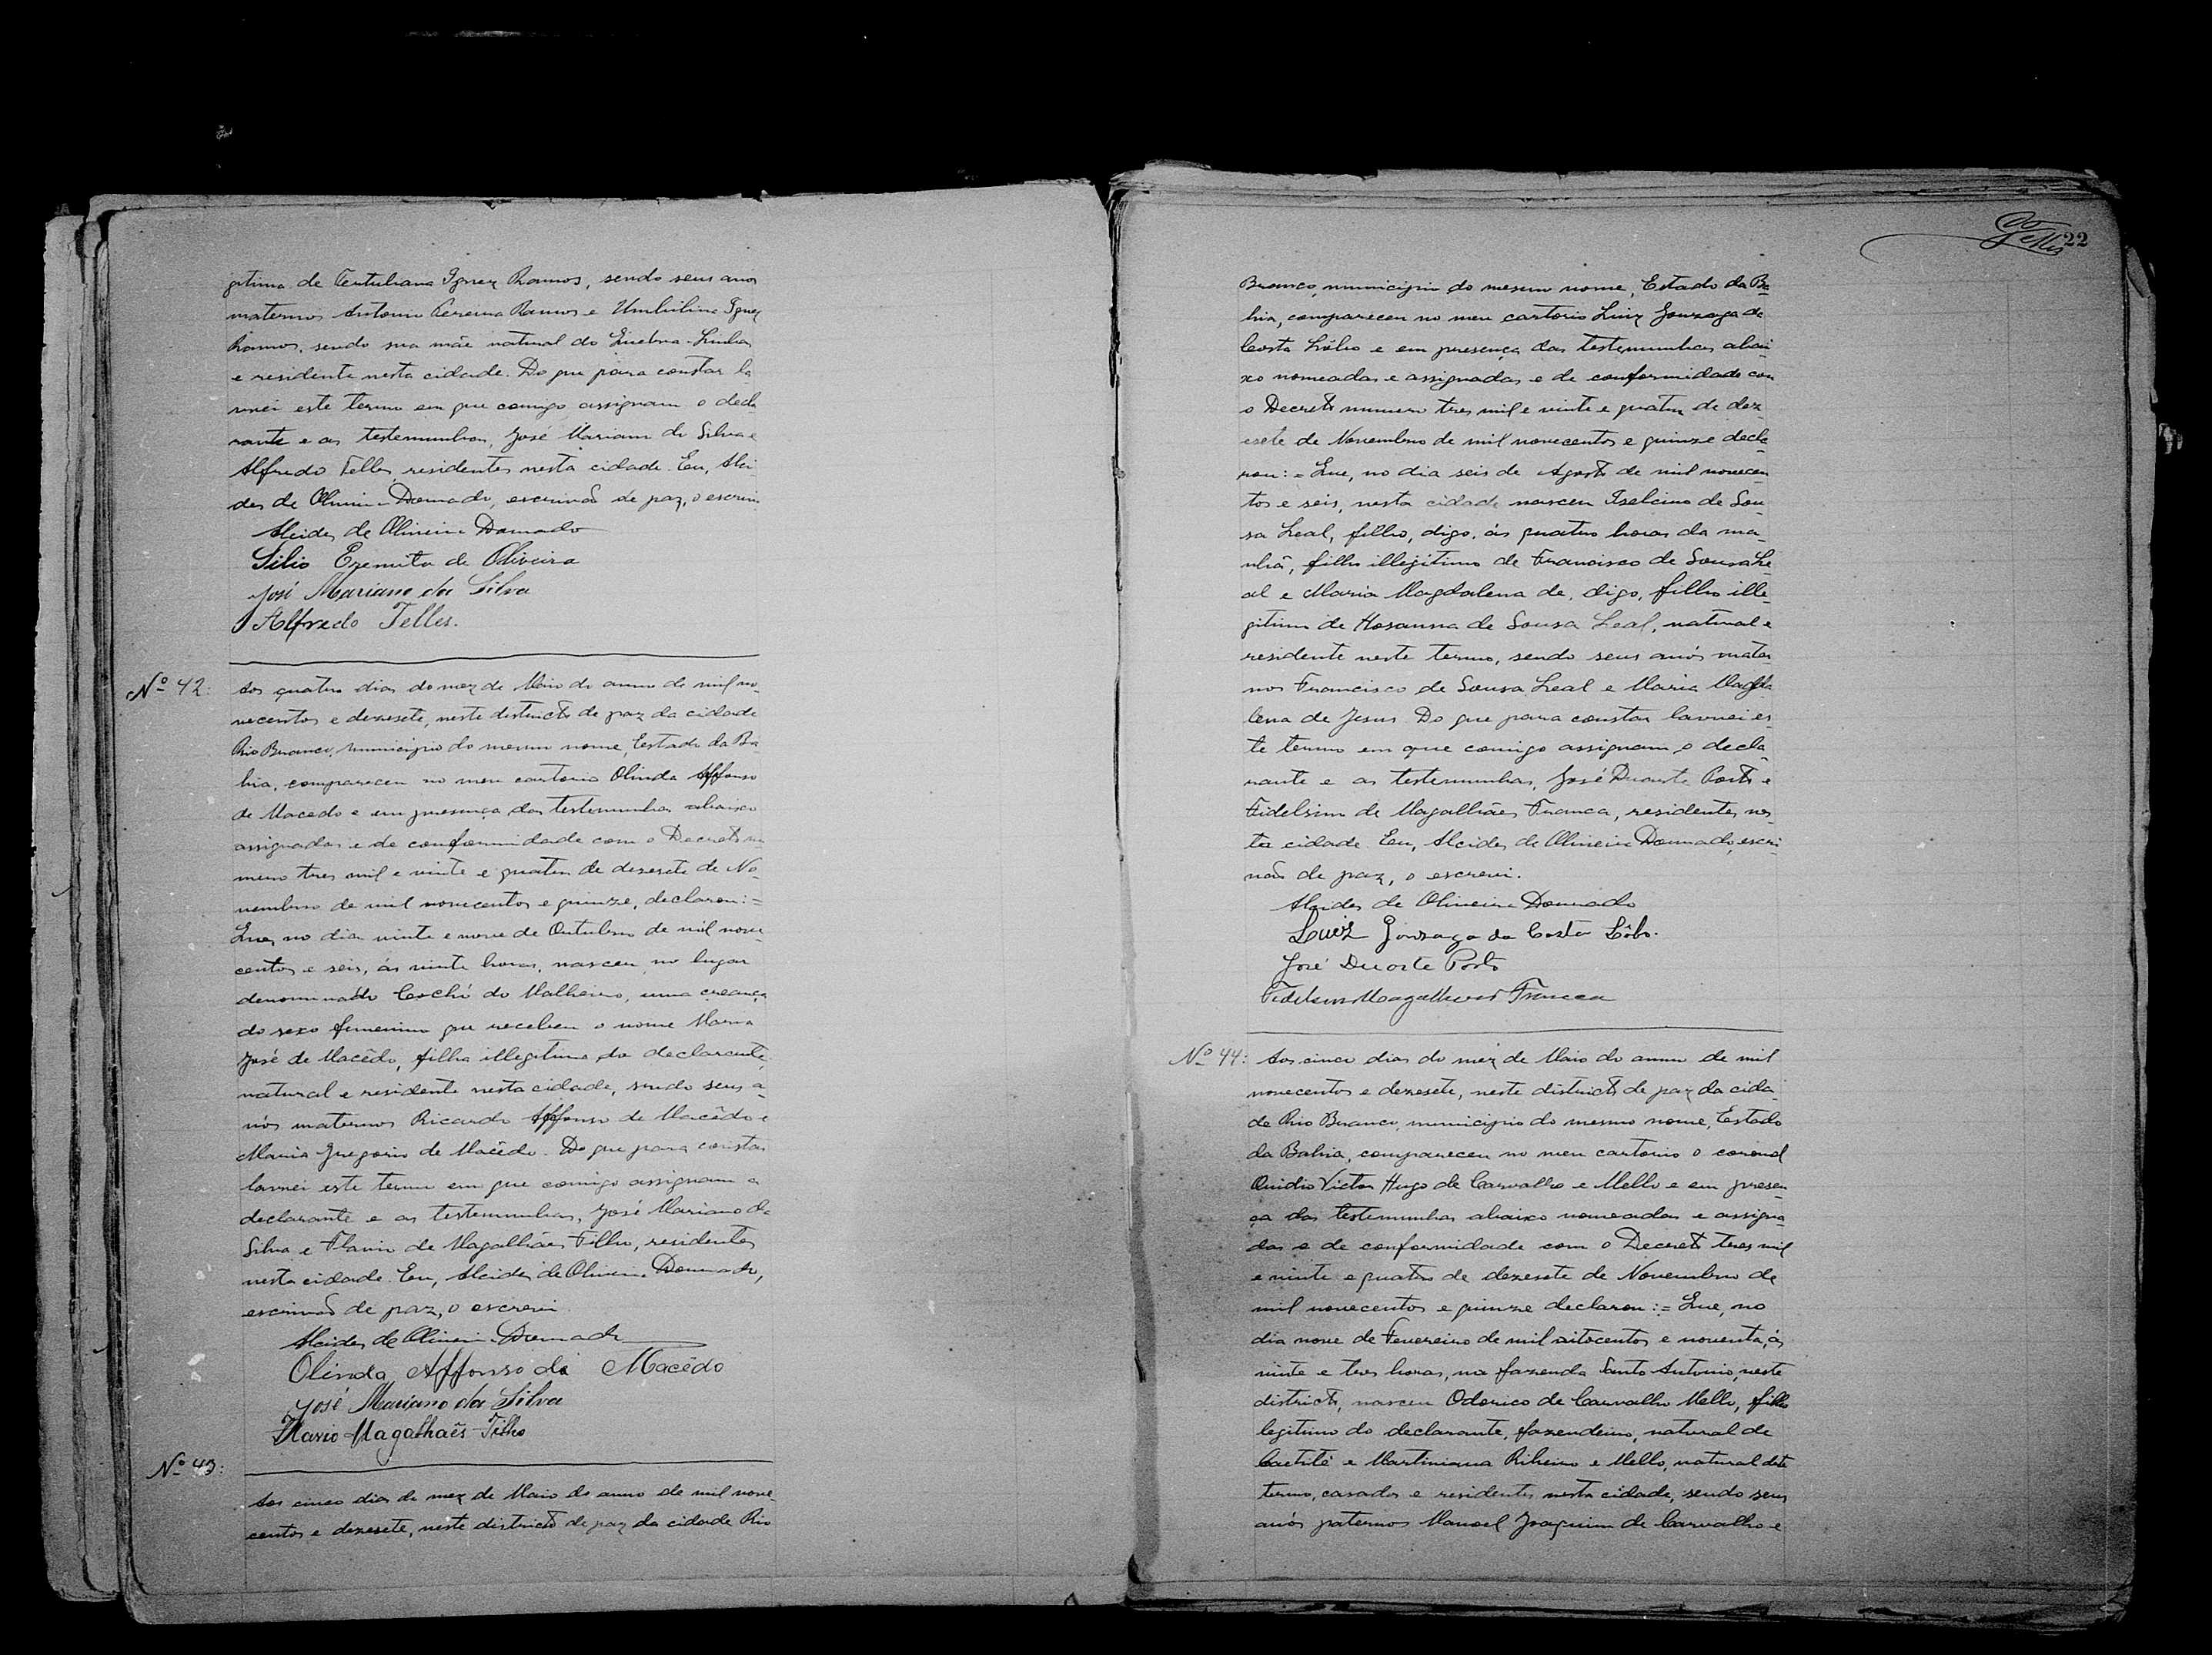 gitima de Tertuliana Ignez Ramos, sendo seus avos
maternos Antonio Pereira Ramos e Umbilina Ignez
Ramos, sendo sua mãe natural do Quebra-Linhas
e residente nesta cidade. Do que para constar la-
vrei este termo em que comigo assignam o decla
rante e as testemunhas, José Mariano da Silva e
Alfredo Telles, residentes nesta cidade. Eu, Alci-
des de Oliveira Dourado, escrivão de paz, o escrevi
Alcides de Oliveira Dourado
Silio Eremita de Oliveira
José Mariano da Silva
Alfredo Telles.
Nº 42:
Aos quatro dias do mez de Maio do anno de mil no-
vecentos e dezesete, neste districto de paz da cidade
Rio Branco, municipio do mesmo nome, Estado da Ba
hia, compareceu no meu cartorio Olinda Affonso
de Macedo e em presença das testemunhas abaixo
assignadas e de conformidade com o Decreto nu
mero tres mil e vinte e quatro de dezesete de No-
vembro de mil novecentos e quinze, declarou:=
Que, no dia vinte e nove de Outubro de mil nove-
centos e seis, ás vinte horas, nasceu no lugar
denominado Cochó do Malheiro, uma creança
do sexo femenino que recebeu o nome Maria
José de Macêdo, filha illegitima da declarante,
natural e residente nesta cidade, sendo seus a-
vós maternos Ricardo Affonso de Macêdo e
Maria Gregorio de Macêdo. Do que para constar
lavrei este termo em que comigo assignam a
declarante e as testemunhas, José Mariano da
Silva e Flavio de Magalhães Filho, residentes
nesta cidade. Eu, Alcides de Oliveira Dourado,
escrivão de paz, o escrevi
Alcides de Oliveira Dourado
Olinda Affonso de Macêdo
José Mariano da Silva
Flavio Magalhaês Filho
Nº 43:
Aos cinco dias do mez de Maio do anno de mil nove-
centos e dezesete, neste districto de paz da cidade Rio
Telles 22
Branco, municipio do mesmo nome, Estado da Ba-
hia, compareceu no meu cartorio Luiz Gonzaga da
Costa Lôbo e em presença das testemunhas abai-
xo nomeadas e assignadas e de conformidade com
o Decreto numero tres mil e vinte e quatro de dez
esete de Novembro de mil novecentos e quinze decla
rou:= Que, no dia seis de Agosto de mil novecen
tos e seis, nesta cidade nasceu Iselcino de Sou-
sa Leal, filho, digo, ás quatro horas da ma-
nhã, filho illegitimo de Francisco de Sousa Le-
al e Maria Magdalena de, digo, filho ille-
gitimo de Hosanna de Sousa Leal, natural e
residente neste termo, sendo seus avós mater
nos Francisco de Sousa Leal e Maria Magda
lena de Jesus. Do que para constar lavrei es
te termo em que comigo assignam o decla-
rante e as testemunhas, José Duarte Porto e
Fidelsino de Magalhães Franca, residentes nes
ta cidade. Eu, Alcides de Oliveira Dourado, escri-
vão de paz, o escrevi.
Alcides de Oliveira Dourado
Luiz Gonzaga da Costa Lôbo.
José Duarte Porto
Fidelsino Magalhães Franca
Nº 44:
Aos cinco dias do mez de Maio do anno de mil
novecentos e dezesete, neste districto de paz da cida-
de Rio Branco, municipio do mesmo nome, Estado
da Bahia, compareceu no meu cartorio o coronel
Ovidio Victor Hugo de Carvalho e Mello e em presen-
ça das testemunhas abaixo nomeadas e assigna-
das e de conformidade com o Decreto tres mil
e vinte e quatro de dezesete de Novembro de
mil novecentos e quinze declarou:= Que, no
dia nove de Fevereiro de mil oitocentos e noventa, ás
vinte e tres horas, na fazenda Santo Antonio, neste
districto, nasceu Odorico de Carvalho Mello, filho
legitimo do declarante, fazendeiro, natural de
Caetité e Martiniana Ribeiro e Mello, natural deste
termo, casados e residentes nesta cidade, sendo seus
avós paternos Manoel Joaquim de Carvalho e